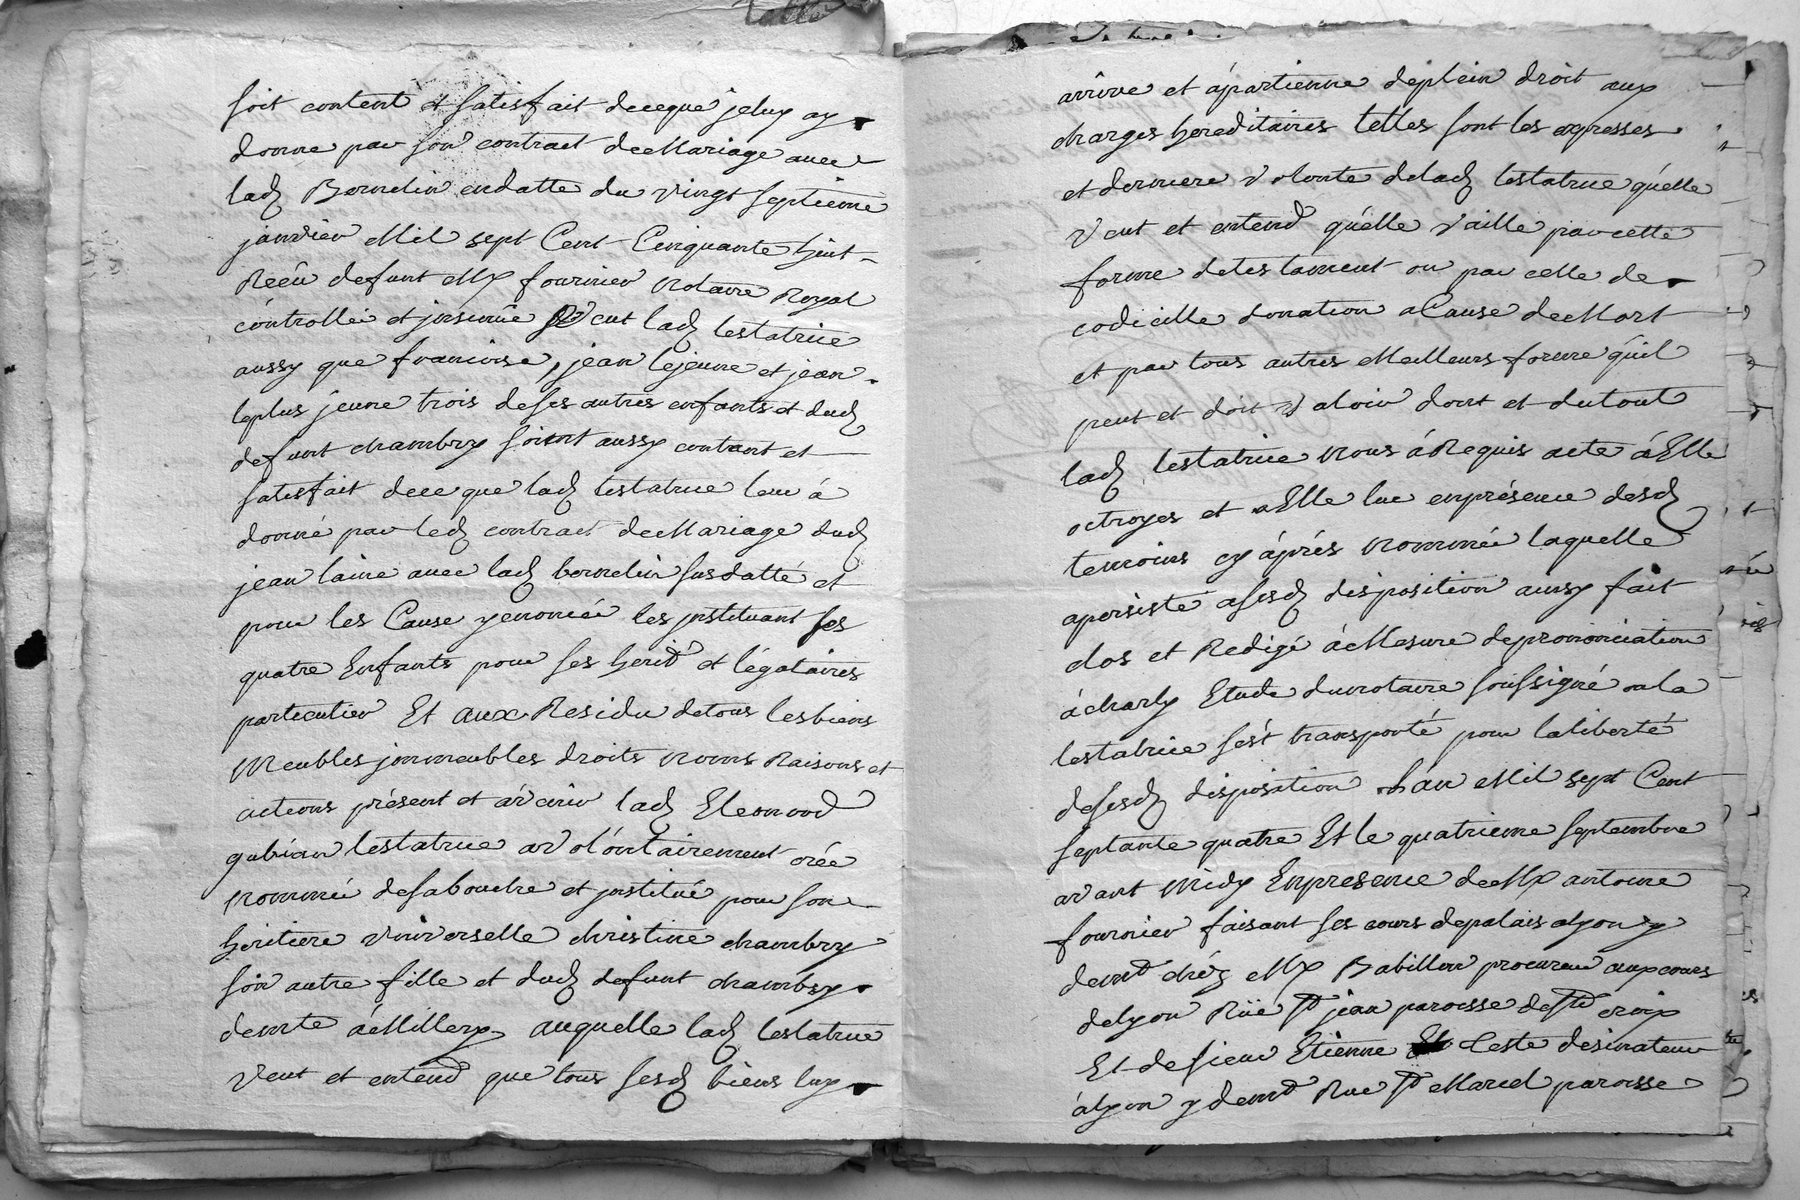 soit content et satisfait deceque jeluy ay
donne par son contract de Mariage avec
lad Bornelin endatte du vingt septieme
janvier Mil sept Cent Cinquante huit
Recû defunt Me fournier Notaire Royal
controllé et jnsinüé Veut lad testatrice
aussy que francoise, jean lejeune et jean
leplus jeune trois deses autres enfants et dud
defunt chambry soient aussy content et
satisfait dece que lad testatrice leur á
donné par led contract de Mariage dud
jean laine avec lad bornelin susdatté et
pour les Cause yenoncée les jnstituant ses
quatre Enfants pour ses herid et légataires
particulier Et aux Residu detous lesbiens
Meubles jmmeubles droits Noms Raisons et
actions présent et avenir lad Eleonord
gubian testatrice avolontairement crée
Nommée desabouche et jnstitué pour son
heritiere universelle christine chambry
son autre fille et dud defunt chambry
demte áMillery auquelle lad testatrice
Veut et entend que tous sesd biens luy
arrive et ápartienne deplein droit aux
charges hereditaires telles sont les expresses
et derniere volonte delad testatrice quélle
veut et entend quélle vaille parcette
forme detestament ou par celle de
codicille donation aCause deMort
et par tous autres Meilleurs forme quil
peut et doit valoir dont et dutout
lad testatrice Nous áRequis acte áElle
octroyes et aElle lue enprésence desd
temoins cy áprés Nommée laquelle
apersisté asesd disposition ainsy fait
clos et Redigé áMesure deprononciation
ácharly Etude dunotaire soussigné oula
testatrice sést transporté pour laliberté
desesd disposition Lan Mil sept Cent
septante quatre Et le quatrieme septembre
avant Midy Enpresence deMe antoine
fournier faisant ses cours depalais alyon y
demt chéz Me Babillon procureur auxcours
delyon Rüe St jean paroisse deSte croix
Et desieur Etienne Ceste desinateur
alyon y demt Rue St Marcel paroisse